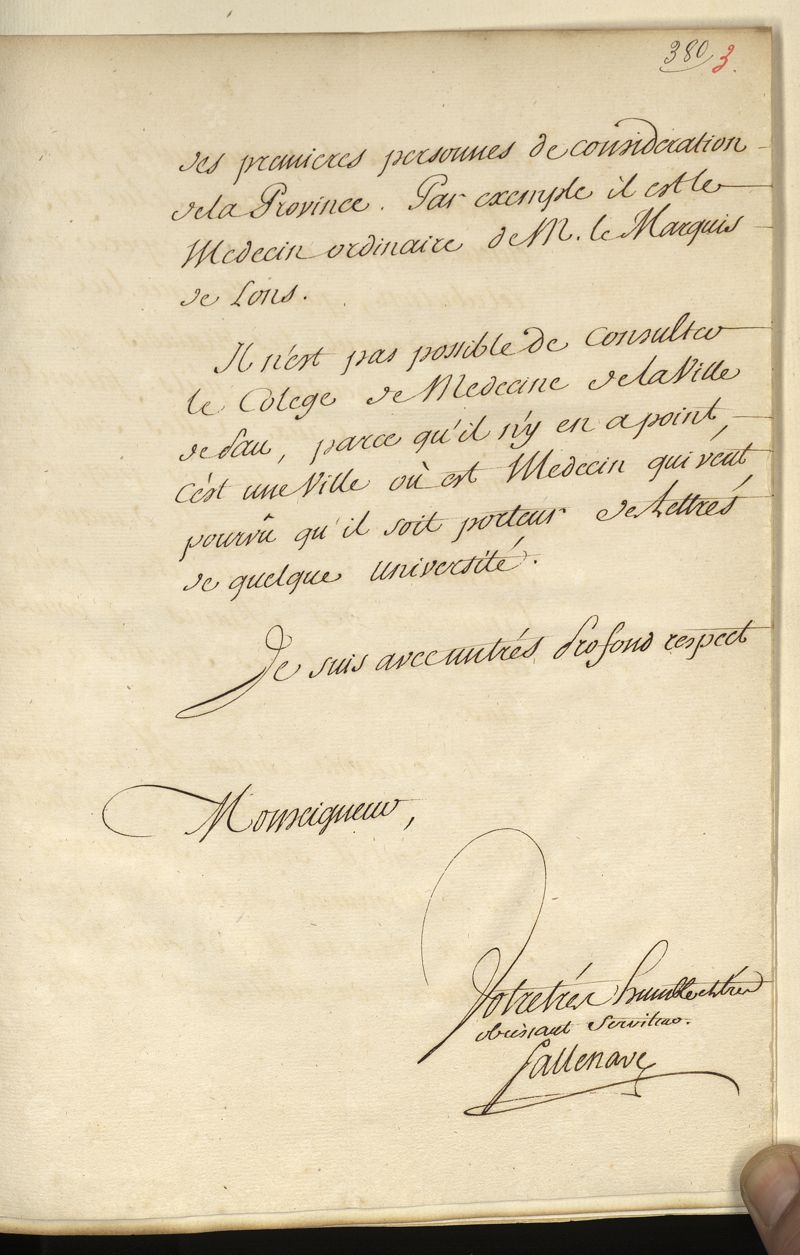 380 3.
des premieres personnes de consideration
de la Province. Par exemple il est le
Medecin ordinaire de M. le Marquis
de Lons.
Il n'est pas possible de Consulter
le Colege de Medecine de la Ville
de Pau, parce qu'il n'y en a point,
C'est une Ville où est Medecin qui veut
pourvû qu'il soit porteur de Lettres
de quelque université.
Je suis avec un trés profond respect
Monseigneur,
Votre trés humble et trés
obeissant Serviteur.
Sallenave